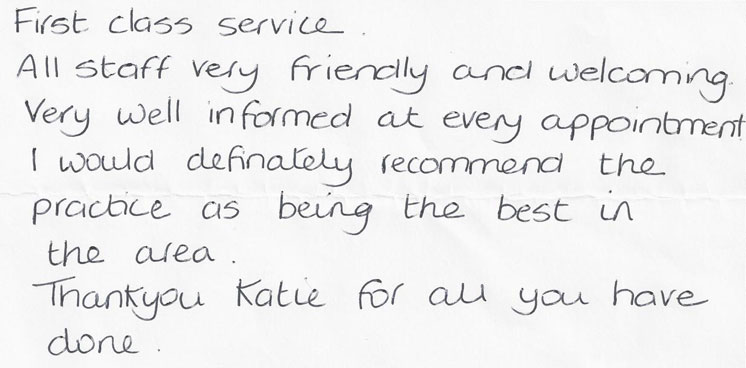 First class service.
All staff very friendly and welcoming.
Very well informed at every appointment
I would definately recommend the
practice as being the best in
the area.
Thankyou Katie for all you have
done.